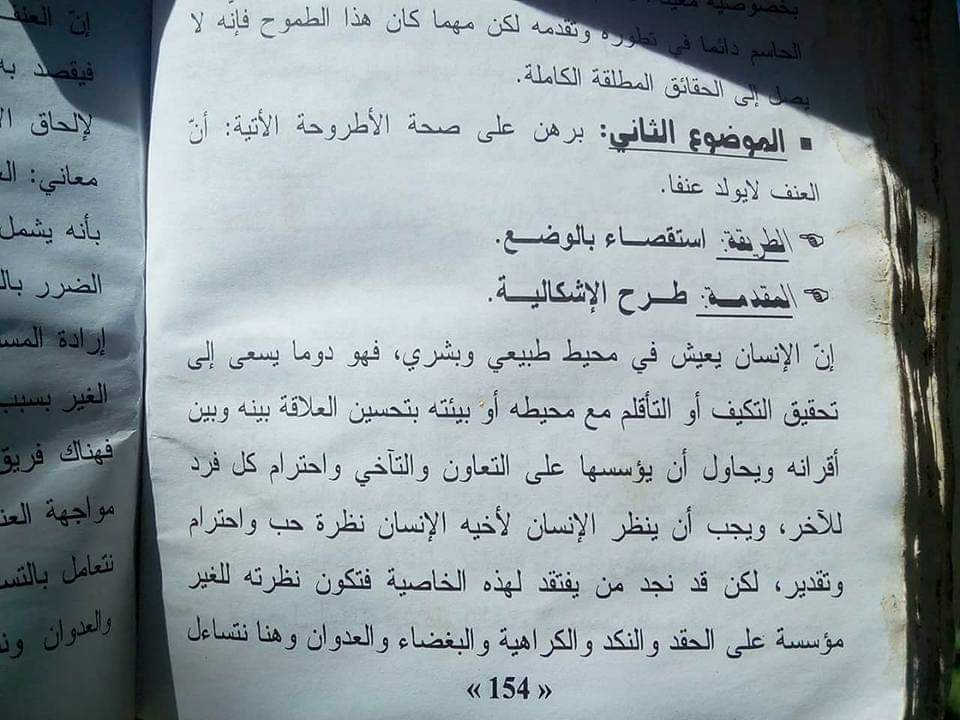 بخصوصية
الحاسم دائما في تطوره وتقدمه لكن مهما كان هذا الطموح فإنّه لا
يصل إلى الحقائق المطلقة الكاملة.
▪ الموضوع الثاني: برهن على صحة الأطروحة الأتية: أنّ
العنف لايولد عنفا.
☜ الطريقة: استقصاء بالوضع.
☜ المقدمة: طرح الإشكالية.
إنّ الإنسان يعيش في محيط طبيعي وبشري، فهو دوما يسعى إلى
تحقيق التكيف أو التأقلم مع محيطه أو بيئته بتحسين العلاقة بينه وبين
أقرانه ويحاول أن يؤسسها على التعاون والتآخي واحترام كل فرد
للآخر، ويجب أن ينظر الإنسان لأخيه الإنسان نظرة حب واحترام
وتقدير، لكن قد نجد من يفتقد لهذه الخاصية فتكون نظرته للغير
مؤسسة على الحقد والنكد والكراهية والبغضاء والعدوان وهنا نتساءل
« 154 »
إنّ العنف
فيقصد به
لإلحاق
معاني:
بأنه يشمل
الضرر
إرادة
الغير بسبب
فهناك فريق
مواجهة
نتعامل
والعدوان